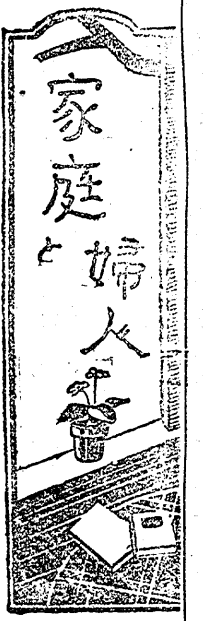 家庭と
婦人